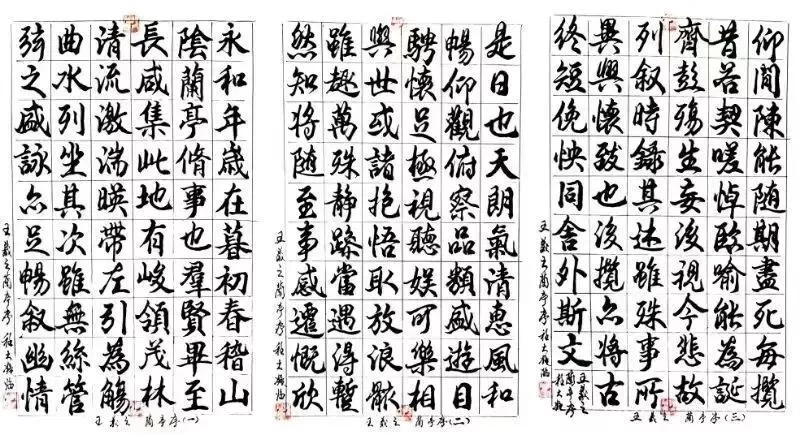 永和年歲在暮初春稽山
陰蘭亭脩事也羣賢畢至
長咸集此地有峻領茂林
清流激湍暎帶左引為觴
曲水列坐其次雖無絲管
弦之盛詠亦足暢敘幽情
王羲之蘭亭序
王羲之 蘭亭序(一)
是日也天朗氣清惠風和
暢仰觀俯察品類盛遊目
騁懷足極視聽娛可樂相
與世或諸抱悟取放浪骸
雖趣萬殊静躁當遇得暫
然知將随至事感遷慨欣
王羲之蘭亭序
王羲之 蘭亭序(二)
仰閒陳能随期盡死每攬
昔若契嗟悼臨喻能為誕
齊彭殤生妄後視今悲故
列敘時錄其述雖殊事所
異興懷致也後攬亦將古
終短俛怏同舍外斯文
王羲之
蘭亭序
王羲之蘭亭序
王羲之 蘭亭序(三)